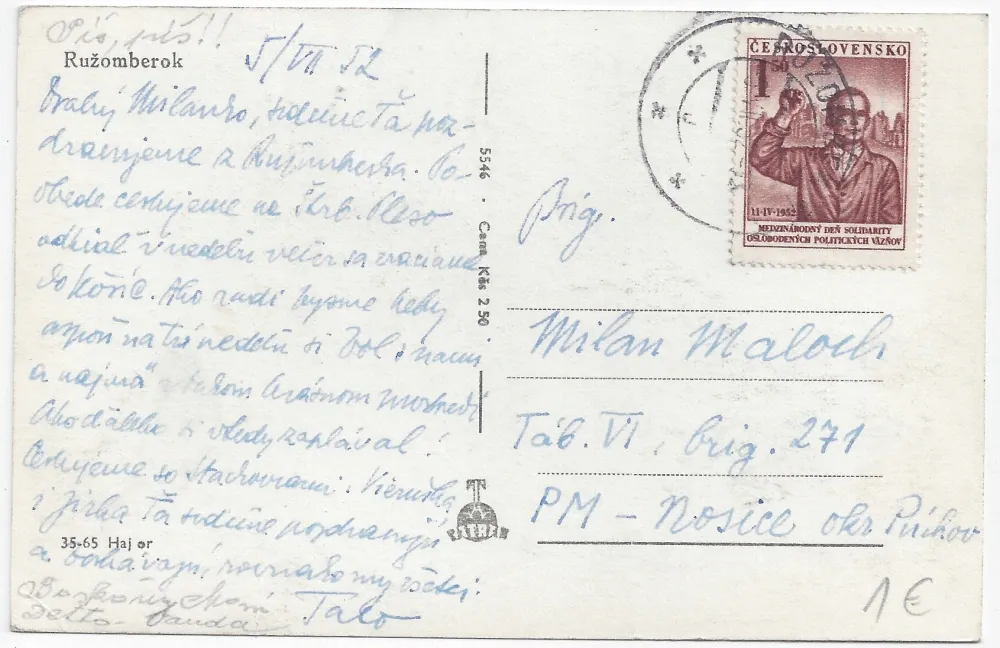 Píš, píš!!
Ružomberok
5/VII 52
Drahý Milanko, srdečne Ťa poz-
dravujeme z Ružomberka. Po-
obede cestujeme na Štrb. Pleso
odkiaľ v nedeľu večer sa vraciame
do Košíc. Ako radi by sme keby
aspoň na tú nedeľu si bol s nami
a najmä v tom krásnom prostredí
Ako ďaleko si vtedy zaplával!
Cestujeme so Stachovcami. Vieruška
i Jirka Ťa srdečne pozdravujú
a bozkávajú, rovnako my všetci.
Tato
Deťo Vanda
5546 • Cena Kčs 2 50
TATRAN
35-65 Hajor
ČESKOSLOVENSKO
1 50
11·IV·1952
MEDZINÁRODNÝ DEŇ SOLIDARITY
OSLOBODENÝCH POLITICKÝCH VÄZŇOV
Brig.
Milan Maloch
Táb. VI, brig. 271
PM – Nosice okr Púchov
1 €